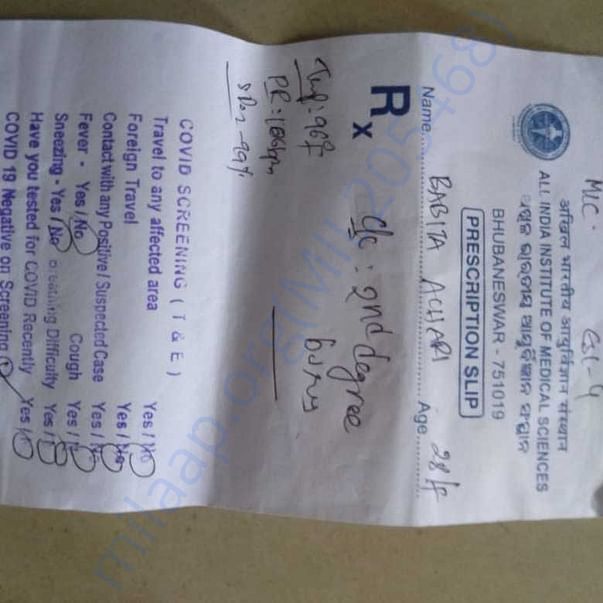 ESI-4
अखिल भारतीय आयुर्विज्ञान संस्थान
ALL INDIA INSTITUTE OF MEDICAL SCIENCES
BHUBANESWAR - 751019
PRESCRIPTION SLIP
Name BABITA ACHARI Age 28/f
Rx
C/C: 2nd degree
burns
Temp: 96°f
PR: 106bpm
SPO2 - 99%
COVID SCREENING ( T & E )
Travel to any affected area Yes / No
Foreign Travel Yes / No
Contact with any Positive / Suspected Case Yes / No
Fever - Yes / No Cough Yes / No
Sneezing - Yes / No Breathing Difficulty Yes / No
Have you tested for COVID Recently Yes / No
COVID 19 Negative on Screening
milaap.org(MIL205468)